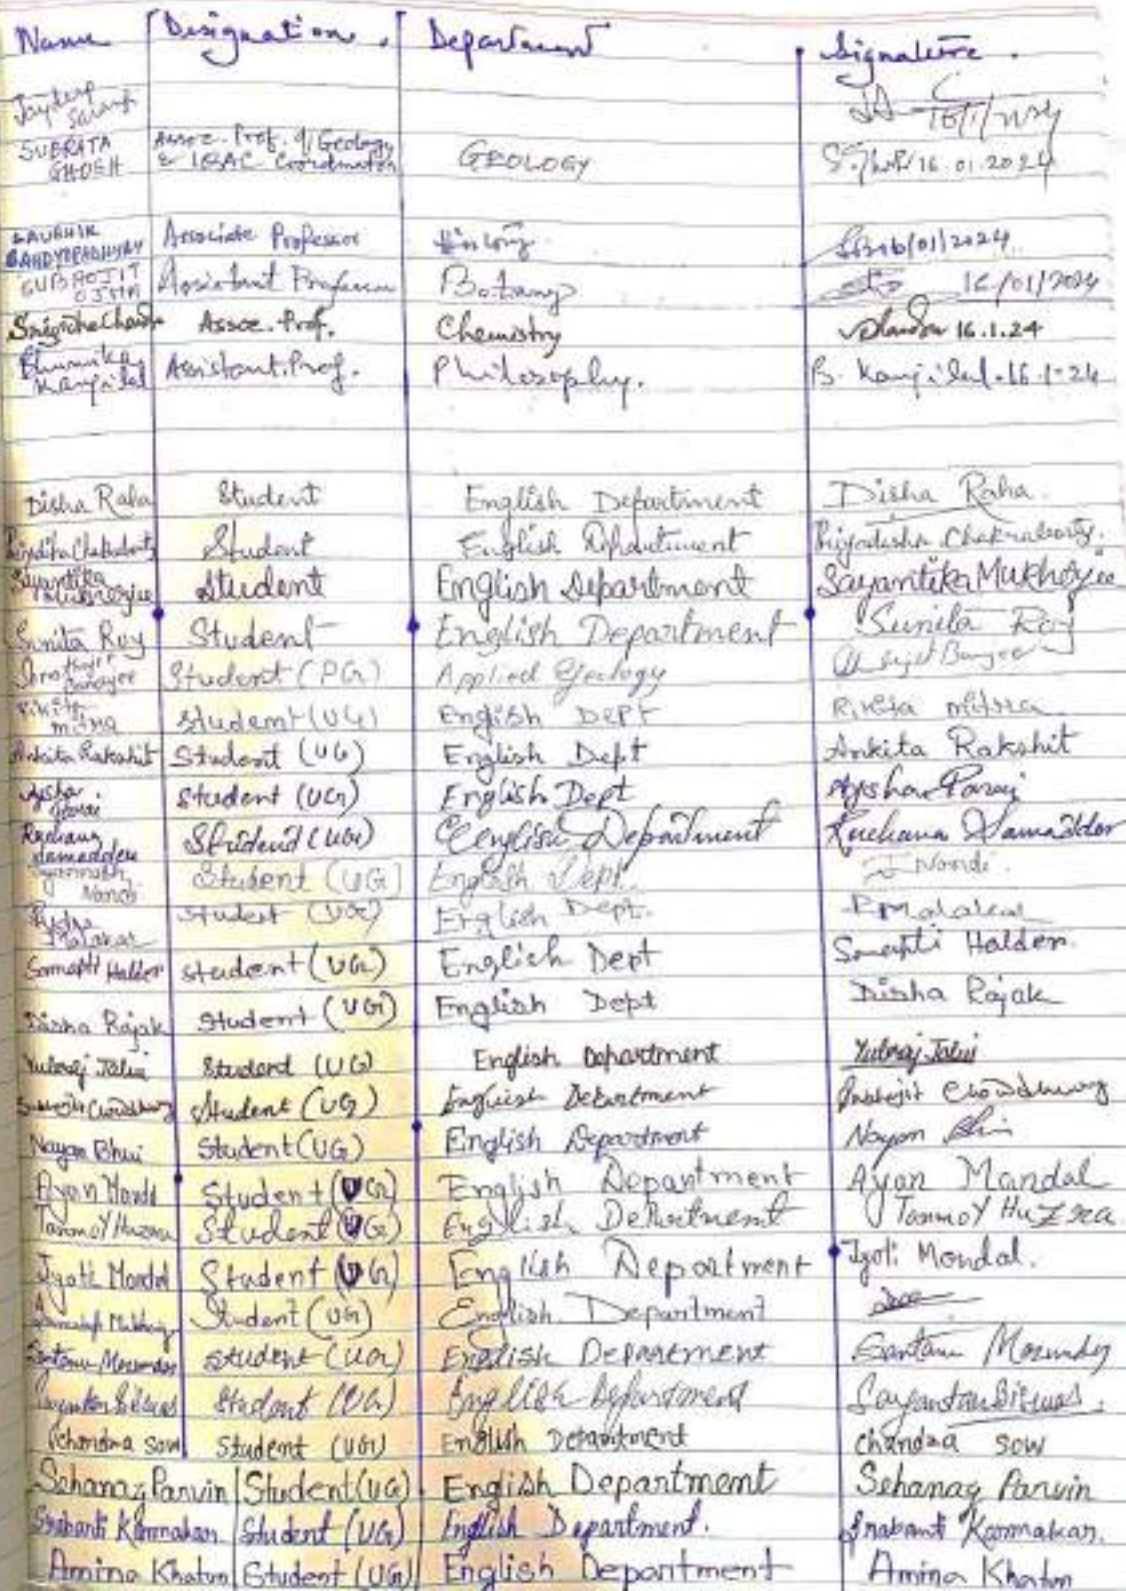 Name Designation. Department Signature.
Jaydeep
Sarangi 16/1/2024
SUBRATA Assoc. Prof. of Geology
GHOSH & IQAC Coordinator GEOLOGY 16.01.2024
KAUSHIK Associate Professor History 16/01/2024
BANDYOPADHYAY
SUBHOJIT Assistant Professor Botany 16/01/2024
OJHA
Snigdha Chandra Assoc. Prof. Chemistry 16.1.24
Bhumika Assistant. Prof. Philosophy. B. Kanjilal. 16-1-24
Kanjilal
Disha Raha Student English Department Disha Raha.
Student English Department Chakraborty.
Sayantika Student English Department Sayantika Mukherjee
Mukherjee
Sunita Roy Student English Department Sunita Roy
Banerjee Student (PG) Applied Geology
Rikita
Mitra Student (UG) English DEPT Rikita Mitra
Ankita Rakshit Student (UG) English Dept Ankita Rakshit
Aysha Student (UG) English Dept Aysha Parvin
Ruchana Student (UG) English Department Ruchana Samaddar
Samadder
Nandi Student (UG) English Dept. Nandi.
Malakar Student (UG) English Dept. P Malakar
Samapti Halder Student (UG) English Dept Samapti Halder.
Disha Rajak Student (UG) English Dept Disha Rajak
Yubraj Jalui Student (UG) English Department Yubraj Jalui
Chowdhury Student (UG) English Department Chowdhury
Nayan Bhui Student (UG) English Department Nayan Bhui
Ayan Mandal Student (UG) English Department Ayan Mandal
Tanmoy Huzra Student (UG) English Department Tanmoy Huzra
Jyoti Mondal Student (UG) English Department Jyoti Mondal.
Student (UG) English Department
Santanu Student (UG) English Department Santanu
Sayantan Biswas Student (UG) English Department Sayantan Biswas.
Chandra Sow Student (UG) English Department Chandra Sow
Sehanaz Parvin Student (UG) English Department Sehanaz Parvin
Srabanti Karmakar Student (UG) English Department. Srabanti Karmakar.
Amina Khatun Student (UG) English Department Amina Khatun